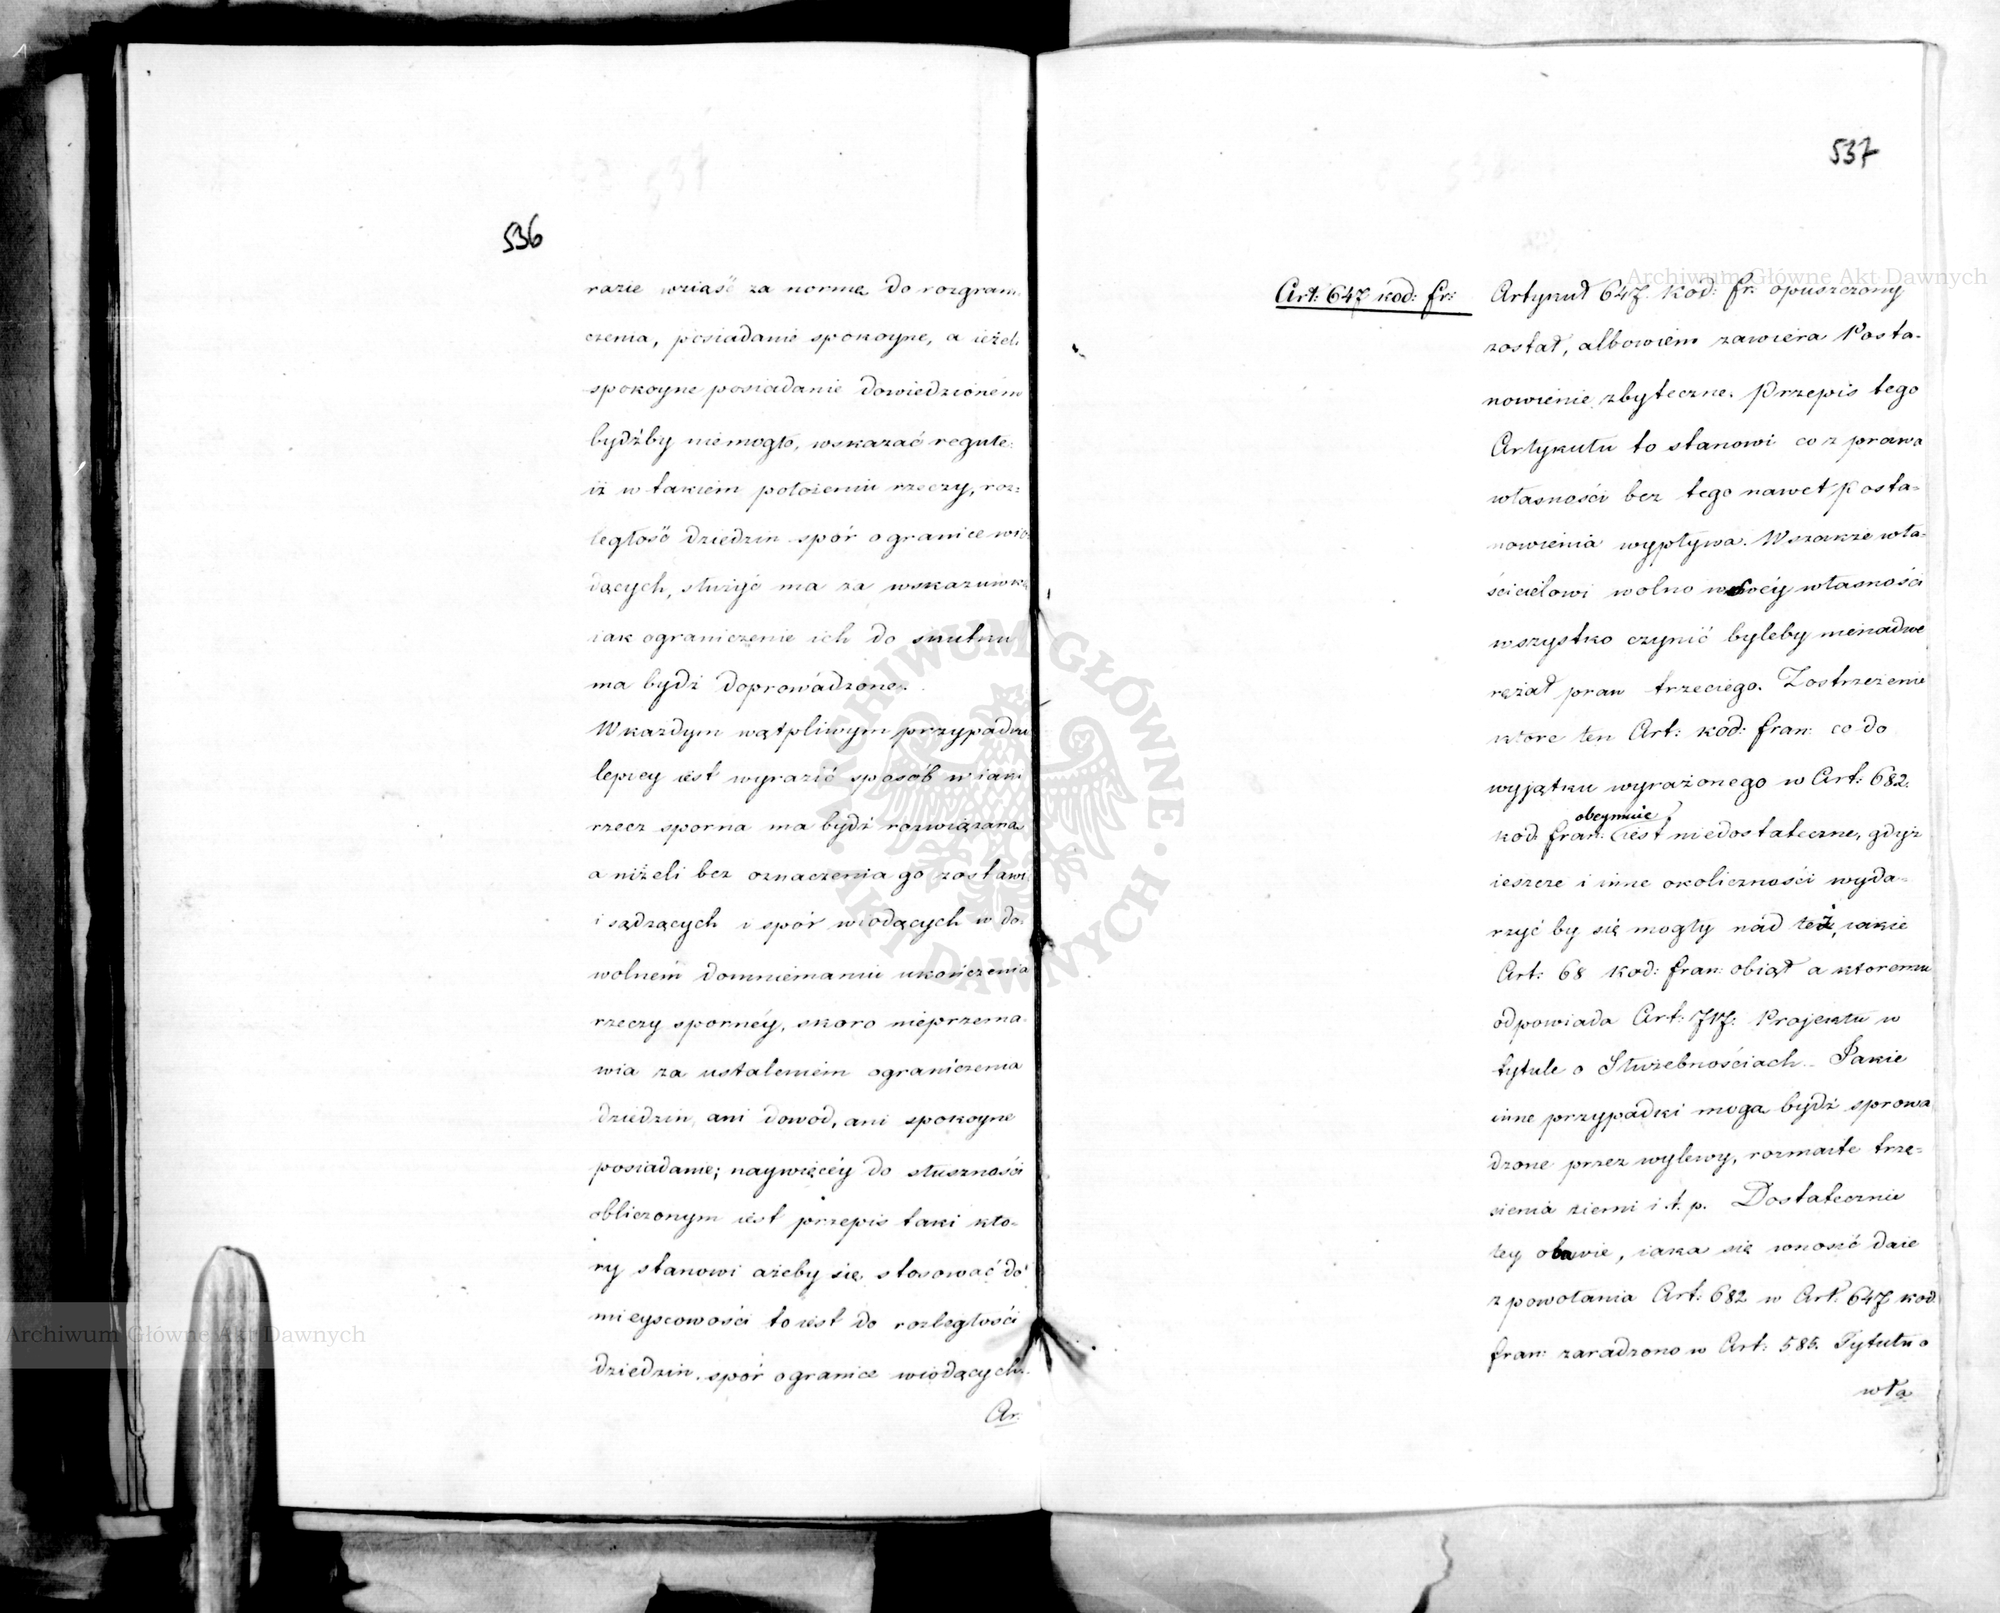 536
razie wziąść za normę do rozgrani-
czenia, posiadanie spokoyne, a ieżeli
spokoyne posiadanie dowiedzioném
bydźby niemogło, wskazać regułe:
iż w takiém położeniu rzeczy, roz-
ległość dziedzin spór o granice wio-
dących, służyć ma za wskazuwkę
iak ograniczenie ich do skutku
ma bydź doprowadzone.
W każdym wątpliwym przypadku
lepiey iest wyrazić sposób w iaki
rzecz sporna ma bydź rozwiązana
a niżeli bez oznaczenia go zostawi
i sądzących i spór wiodących w do-
wolném domniemaniu ukończenia
rzeczy spornéy, skoro nieprzema-
wia za ustaleniem ograniczenia
dziedzin, ani dowód, ani spokoyne
posiadanie; naywięcéy do słuszności
obliczonym iest przepis taki któ-
ry stanowi ażeby się stosować do
mieyscowości to iest do rozległości
dziedzin spór o granice wiodących.
Ar:
537
Art: 647 kod: fr:
Artykuł 647. Kod: fr: opuszczony
został, albowiem zawiera Posta-
nowienie zbyteczne. Przepis tego
Artykułu to stanowi co z prawa
własności bez tego nawet Posta-
nowienia wypływa. Wszakże wła-
ścicielowi wolno w swéy własności
wszystko czynić byleby nienadwe
rężał praw trzeciego. Zostrzeżenie
które ten Art: kod: fran: co do
wyjątku wyrażonego w Art: 682.
obeymuie
kod: fran: iest niedostateczne, gdyż
ieszcze i inne okoliczności wyda-
rzyć by się mogły nad też, iakie
Art: 68 kod: fran: obiął a któremu
odpowiada Art: 717: Projektu w
tytule o Służebnościach. Jakie
inne przypadki mogą bydź sprowa
dzone przez wylewy, rozmaite trzę-
sienia ziemi i t. p. Dostatecznie
tey obawie, iaka się wnosić daie
z powołania Art: 682 w Art: 647 kod:
fran: zaradzono w Art: 585. Tytułu o
wła
Archiwum Główne Akt Dawnych
Archiwum Główne Akt Dawnych
ARCHIWUM GŁÓWNE · AKT DAWNYCH ·